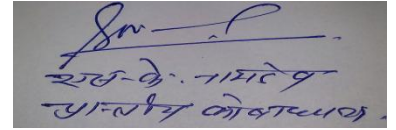 एस-के. नामदेव
प्रान्तीय कोषाध्यक्ष.